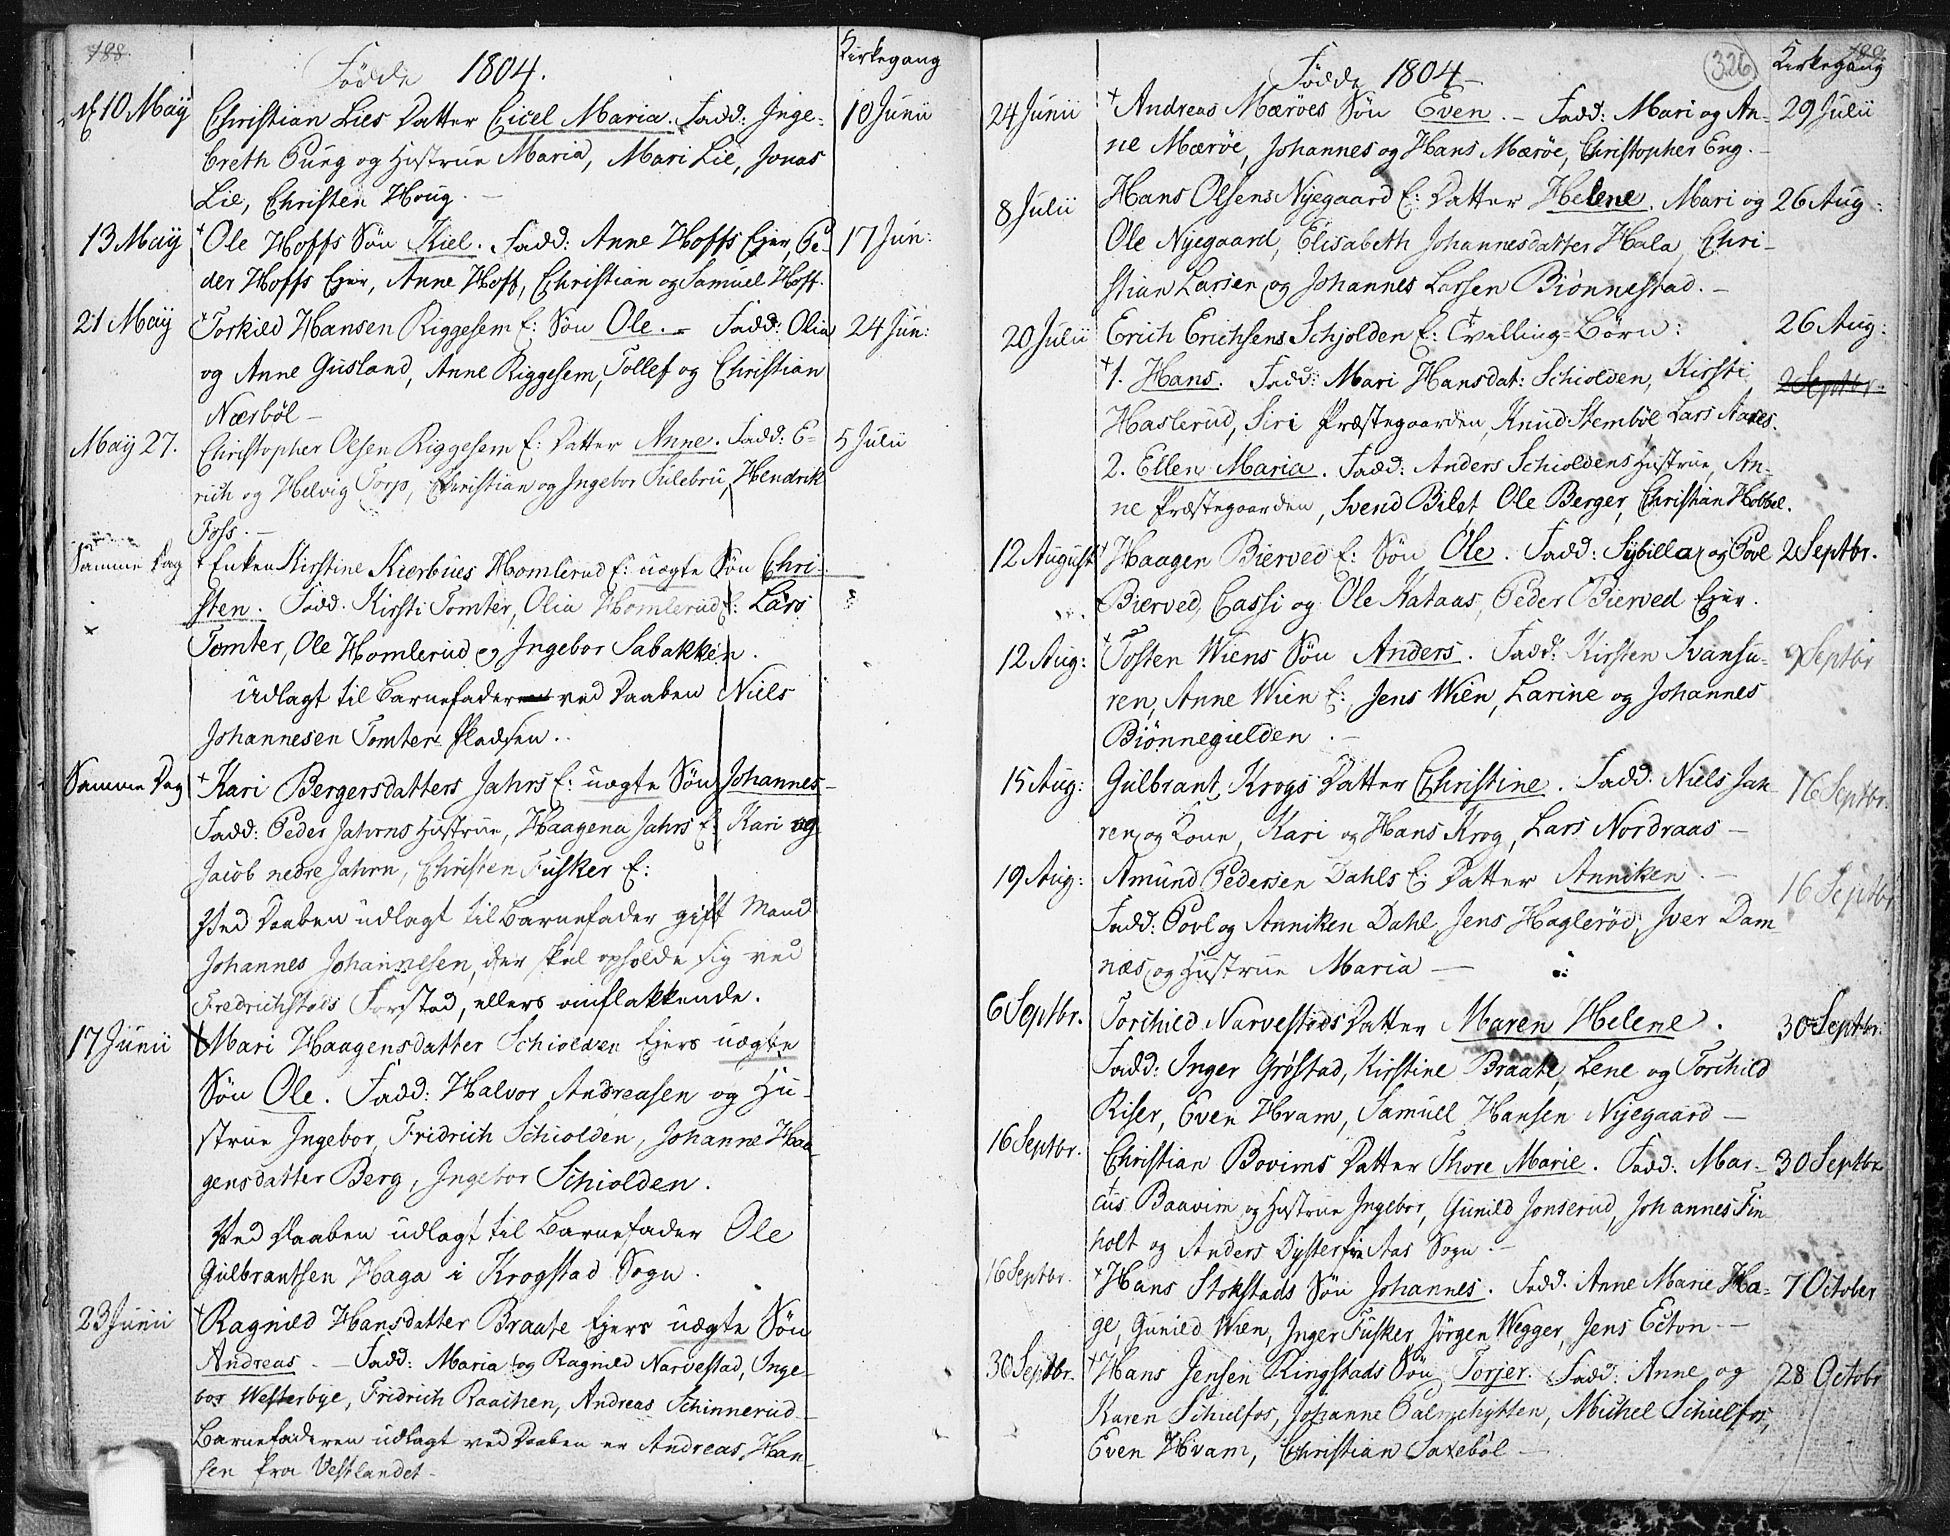 188.
Födde 1804.
Kirkegang
d 10 May Christian Lies Datter Cicel Maria. Fadd: Inge- 10 Junii
breth Burg og Hustrue Maria, Mari Lie, Jonas
Lie, Christen Houg. —
13 May † Ole Hoffs Søn Kiel. Fadd: Anne Hoffs Ejer, Pe- 17 Jun:
der Hoffs Ejer, Anne Hoff, Christian og Samuel Hoff.
21 May † Torkild Hansen Riggesem E: Søn Ole. — Fadd: Olia 24 Jun:
og Anne Gusland, Anne Riggesem, Tollef og Christian
Nærbøl —
May 27. Christopher Olsen Riggesem E: Datter Anne. Fadd: E- 5 Julii
rich og Helvig Torp, Christian og Ingebor Tulebru, Hendrik
Foss. —
Samme Dag † Enken Kirstine Kierbues Homlerud E: uægte Søn Chri-
sten. Fadd. Kirsti Tomter, Olia Homlerud E: Lars
Tomter, Ole Homlerud og Ingebor Sabakken.
Udlagt til Barnefader ved Daaben Niels
Johannesen Tomter Pladsen.
Samme Dag † Kari Bergersdatters Jahrs E: uægte Søn Johannes —
Fadd: Peder Jahrns Hustrue, Haagena Jahrs E: Kari og
Jacob nedre Jahrn, Christen Fusker E:
Ved Daaben udlagt til Barnefader gift Mand
Johannes Johannesen, der skal opholde sig ved
Fredrichstads Forstad, ellers omflakkende.
17 Junii † Mari Haagensdatter Schiolden Ejers uægte
Søn Ole. Fadd: Halvor Andreasen og Hu-
strue Ingebor, Fridrich Schiolden, Johanne Haa-
gensdatter Berg, Ingebor Schiolden.
Ved Daaben udlagt til Barnefader Ole
Gulbrantsen Haga i Krogstad Sogn.
23 Junii † Ragnild Hansdatter Braate Ejers uægte Søn
Andreas. — Fadd: Maria og Ragnild Narvestad, Inge-
bor Westerbye, Fridrich Raachen, Andreas Schinnerud —
Barnefaderen udlagt ved Daaben er Andreas Han-
sen fra Vestlandet —
189
326
Födde 1804 —
Kirkegang
24 Junii † Andreas Mærøes Søn Even. — Fadd: Mari og An- 29 Julii
ne Mærøe, Johannes og Hans Mærøe, Christopher Eng. —
8 Julii Hans Olsens Nyegaard E: Datter Helene. Mari og 26 Aug:
Ole Nyegaard, Elisabeth Johannesdatter Hala, Chri-
stian Larsen og Johannes Larsen Biønnestad. —
20 Julii Erich Erichsens Schjolden E: Tvilling-Børn: 26 Aug:
† 1. Hans. Fadd: Mari Hansdat: Schiolden, Kirsti 2 Septbr.
Haslerud, Siri Præstegaarden, Knud Stembøl Lars Aaes.
2. Ellen Maria. Fadd: Anders Schioldens Hustrue, An-
ne Præstegaarden, Svend Bilet, Ole Berger, Christian Hobbel.
12 August † Haagen Bierved E: Søn Ole. Fadd: Sybilla og Povl 2 Septbr.
Bierved, Cassi og Ole Kataas, Peder Bierved Ejer.
12 Aug: † Tosten Wiens Søn Anders. Fadd: Kirsten Svansu- 9 Septbr
ren, Anne Wien E: Jens Wien, Larine og Johannes
Biønnegulden. —
15 Aug: Gulbrant Krogs Datter Christine. Fadd: Niels Jah- 16 Septbr.
ren og Kone, Kari og Hans Krog, Lars Nordraas —
19 Aug: Amund Pedersen Dahls E: Datter Anniken. — 16 Septbr
Fadd: Povl og Anniken Dahl, Jens Haglerød, Iver Dam-
næs og Hustrue Maria —
6 Septbr. Torchild Narvestads Datter Maren Helene. 30 Septbr.
Fadd: Inger Grøstad, Kirstine Braate, Lene og Torchild
Riser, Even Hvam, Samuel Hansen Nyegaard —
16 Septbr. Christian Bovims Datter Thore Marie. Fadd: Mar- 30 Septbr
cus Baavim og Hustrue Ingebor, Gunild Jonserud, Johannes Fin-
holt og Anders Dyster i Aas Sogn. —
16 Septbr. † Hans Stokstads Søn Johannes. Fadd: Anne Marie Ha- 7 October
ge, Gunild Wien, Inger Fusker, Jørgen Wegger, Jens Ecton —
30 Septbr. † Hans Jensen Ringstads Søn Torjer. Fadd: Anne og 28 Octobr
Karen Schielfos, Johanne Palmehytten, Michel Schielfos,
Even Hvam, Christian Saxebøl —